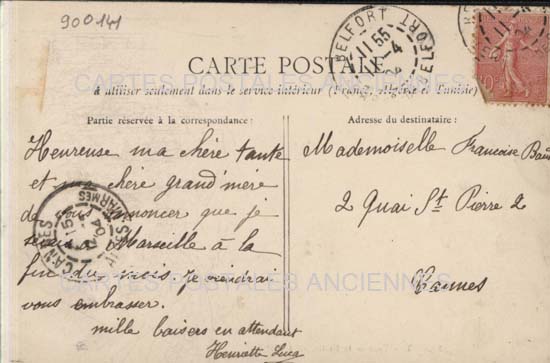 900141
BELFORT
11 55
-4
BELFORT
CARTE POSTALE
CARTES POSTALES ANCIENNES
à utiliser seulement dans le service intérieur (France, Algérie et Tunisie)
Partie réservée à la correspondance :
Heureuse ma chère tante
et ma chère grand'mère
de vous annoncer que je
serai à Marseille à la
fin du mois je viendrai
vous embrasser.
mille baisers en attendant
Henriette Luca
Adresse du destinataire :
Mademoiselle Francoise
2 Quai St Pierre 2
Cannes
CANNES
15
04
CARTES POSTALES ANCIENNES